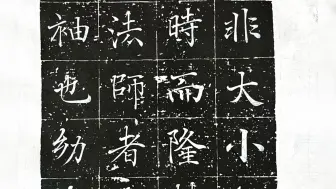 非大小
時而隆
法師者
袖也幼